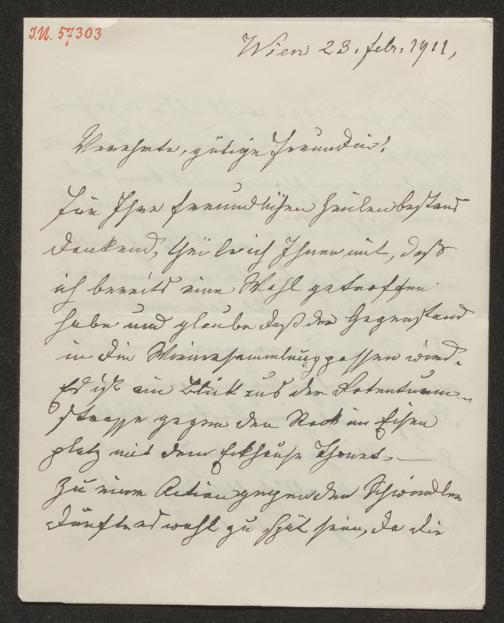 I.N. 57303
Wien 23. febr. 1911,
Verehrte, gütige Freundin!
Für Ihre freundlichen
dankend, theile ich Ihnen mit, daß
ich bereits eine Wahl getroffen
habe und glaube daß der Gegenstand
in die Wienersammlung passen wird.
Es ist ein Blick aus der Rotenturm-
strasse gegen den Stock im Eisen
platz mit dem Eckhause Thonet.
Zu einer Action gegen den Schwindler
dürfte es wohl zu spät sein, da die